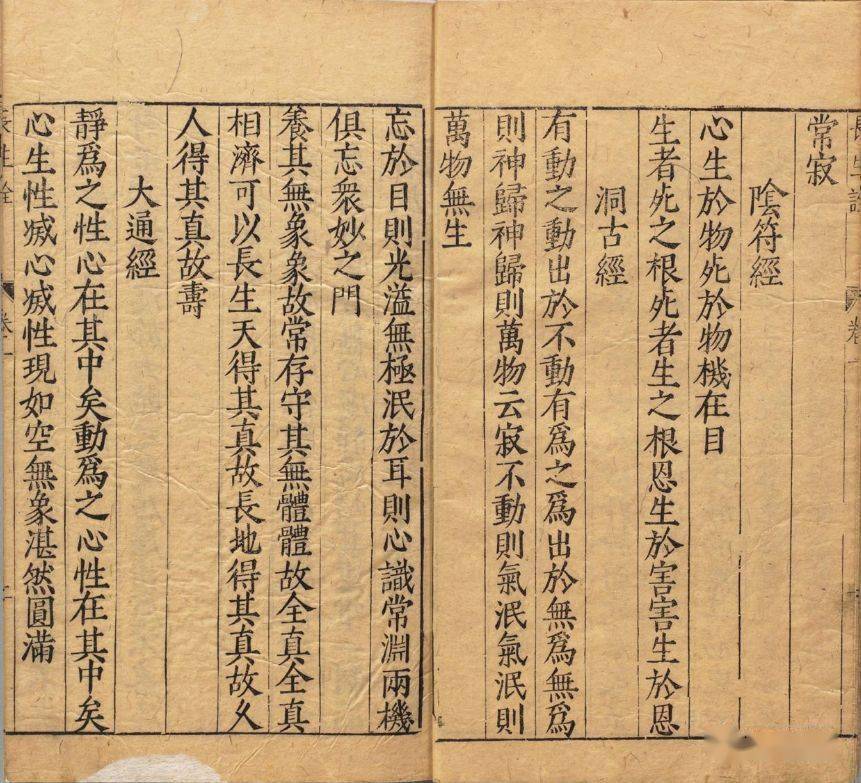 長生詮
卷一
常寂
陰符經
心生於物死於物機在目
生者死之根死者生之根恩生於害害生於恩
洞古經
有動之動出於不動有爲之爲出於無爲無爲
則神歸神歸則萬物云寂不動則氣泯氣泯則
萬物無生
忘於目則光溢無極泯於耳則心識常淵兩機
俱忘衆妙之門
養其無象象故常存守其無體體故全真全真
相濟可以長生天得其真故長地得其真故久
人得其真故壽
大通經
靜爲之性心在其中矣動爲之心性在其中矣
心生性滅心滅性現如空無象湛然圓滿